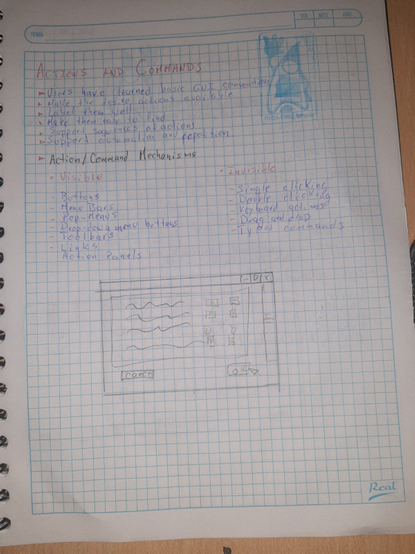 TEMA
DIA MES AÑO
ACTIONS AND COMMANDS
Users have learned basic GUI conventions
Make the desire actions available
Label them well
Make them easy to find
Support sequences of actions
Support automation and repetition
Action/Command Mechanisms
Visible
Invisible
- Buttons
- Menu Bars
- Pop-Menus
- Drop down menu buttons
- Toolbars
- Links
- Action Panels
- Single clicking
- Double clicking
- Keyboard actions
- Drag and drop
- Typed commands
Real